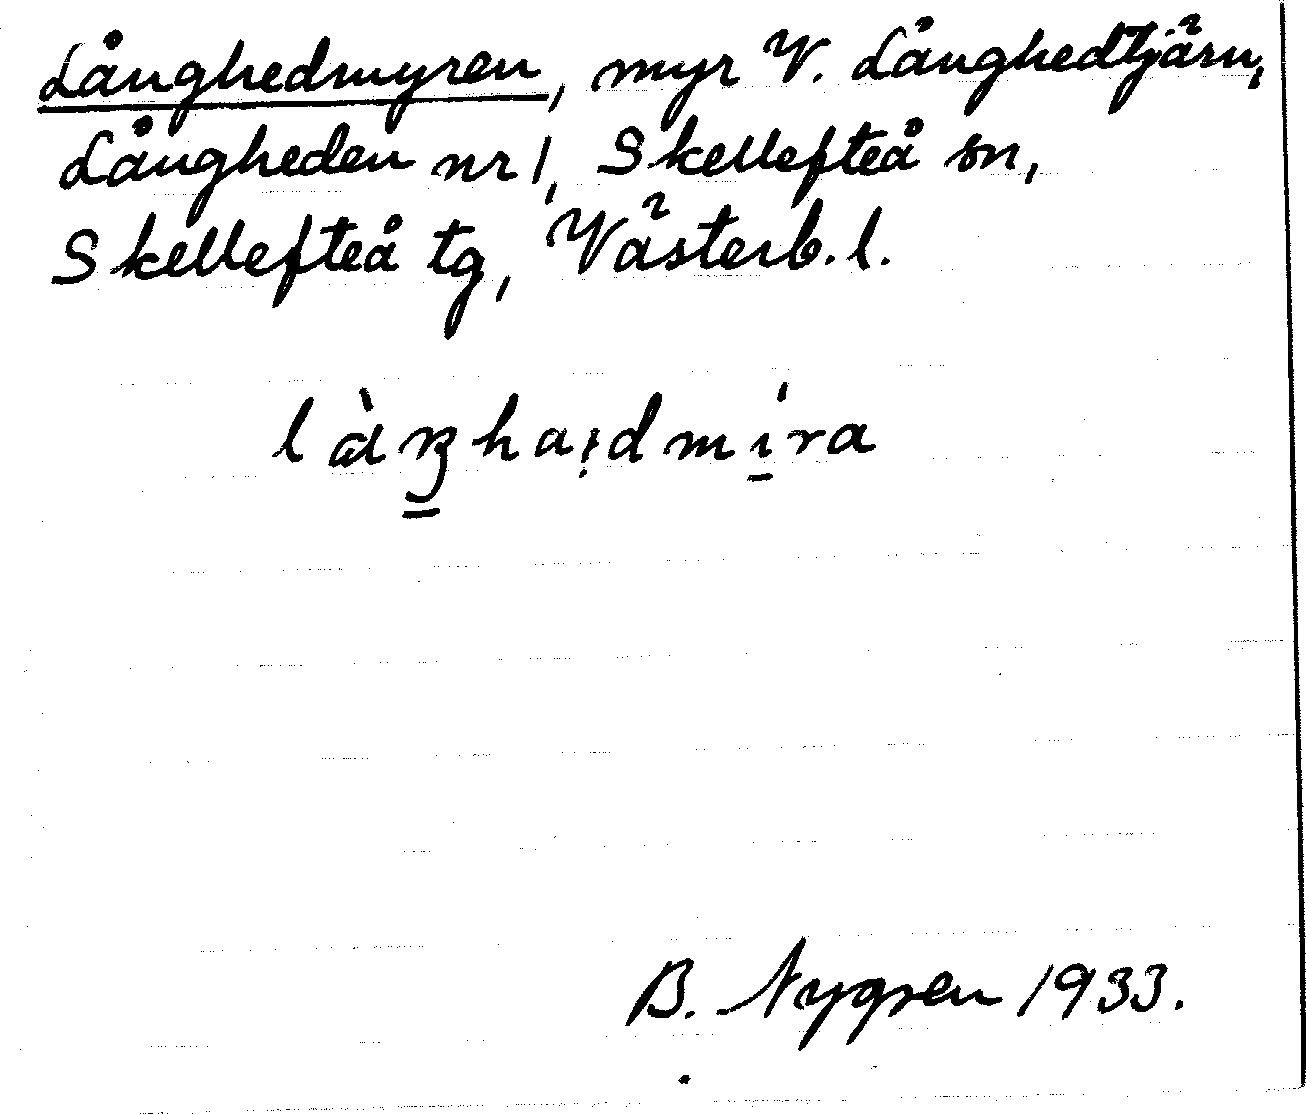 Långhedmyren, myr V. Långhedtjärn,
Långheden nr 1, Skellefteå sn,
Skellefteå tg, Västerb. l.
làŋhai̯dmí̱ra
B. Nygren 1933.